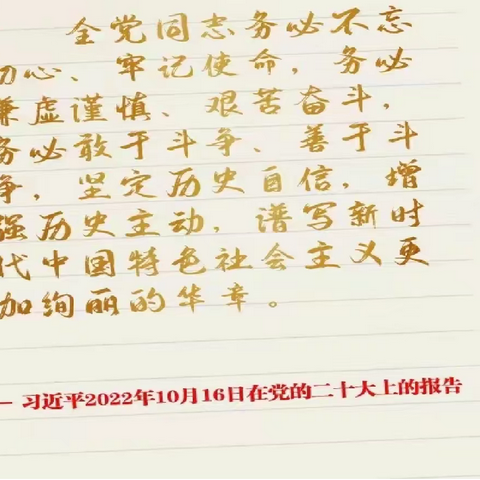 全党同志务必不忘
初心、牢记使命，务必
谦虚谨慎、艰苦奋斗，
务必敢于斗争、善于斗
争，坚定历史自信，增
强历史主动，谱写新时
代中国特色社会主义更
加绚丽的华章。
— 习近平2022年10月16日在党的二十大上的报告